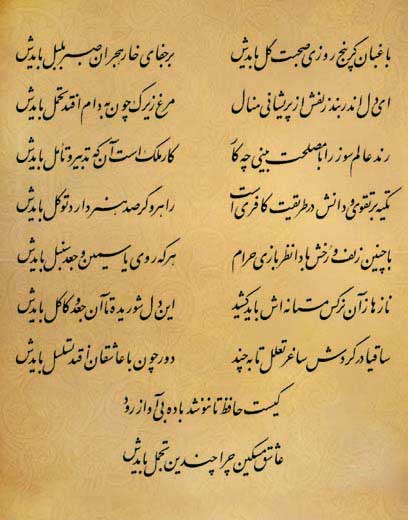 باغبان گر پنج روزی صحبت گل بایدش بر جفای خار هجران صبر بلبل بایدش
ای دل اندر بند زلفش از پریشانی منال مرغ زیرک چون به دام افتد تحمل بایدش
رند عالم سوز را با مصلحت بینی چه کار کار ملک است آن که تدبیر و تأمل بایدش
تکیه بر تقوی و دانش در طریقت کافری است راهرو گر صد هنر دارد توکل بایدش
با چنین زلف و رخش بادا نظربازی حرام هر که روی یاسمین و جعد سنبل بایدش
نازها زآن نرگس مستانه اش باید کشید این دل شوریده تا آن جعد و کاکل بایدش
ساقیا در گردش ساغر تعلل تا به چند دور چون با عاشقان افتد تسلسل بایدش
کیست حافظ تا ننوشد باده بی آواز رود
عاشق مسکین چرا چندین تجمل بایدش